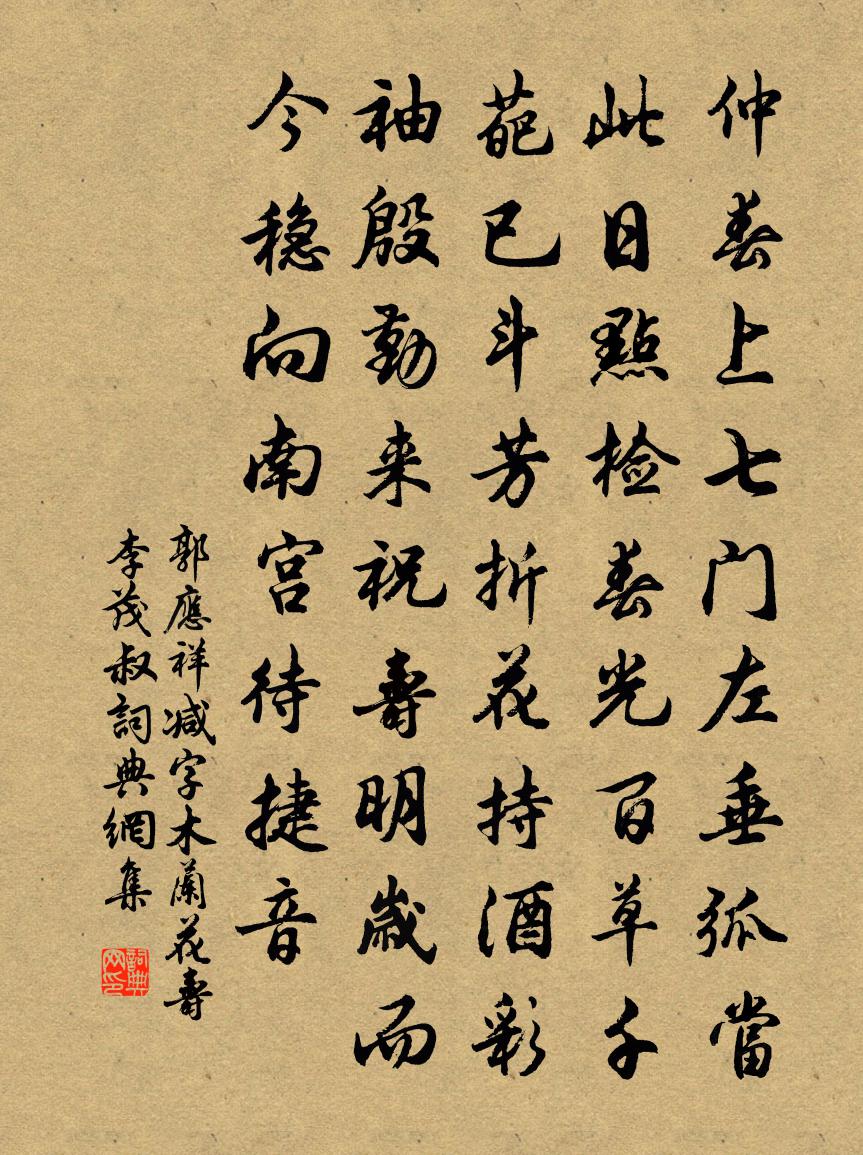 仲春上七门左垂弧當
此日點检春光百草千
葩已斗芳折花持酒彩
袖殷勤来祝壽明歲而
今穏向南宫待捷音
郭應祥减字木蘭花壽
李茂叔詞典網集
詞典网印